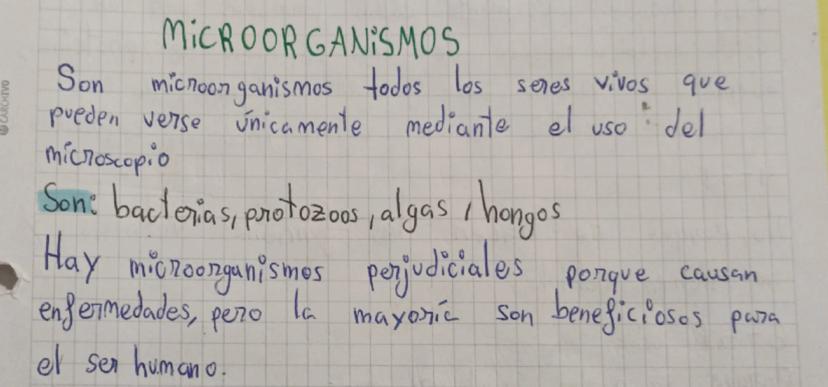 MICROORGANISMOS
Son microorganismos todos los seres vivos que
pueden verse únicamente mediante el uso del
microscopio
Son: bacterias, protozoos, algas, hongos
Hay microorganismos perjudiciales porque causan
enfermedades, pero la mayoría son beneficiosos para
el ser humano.